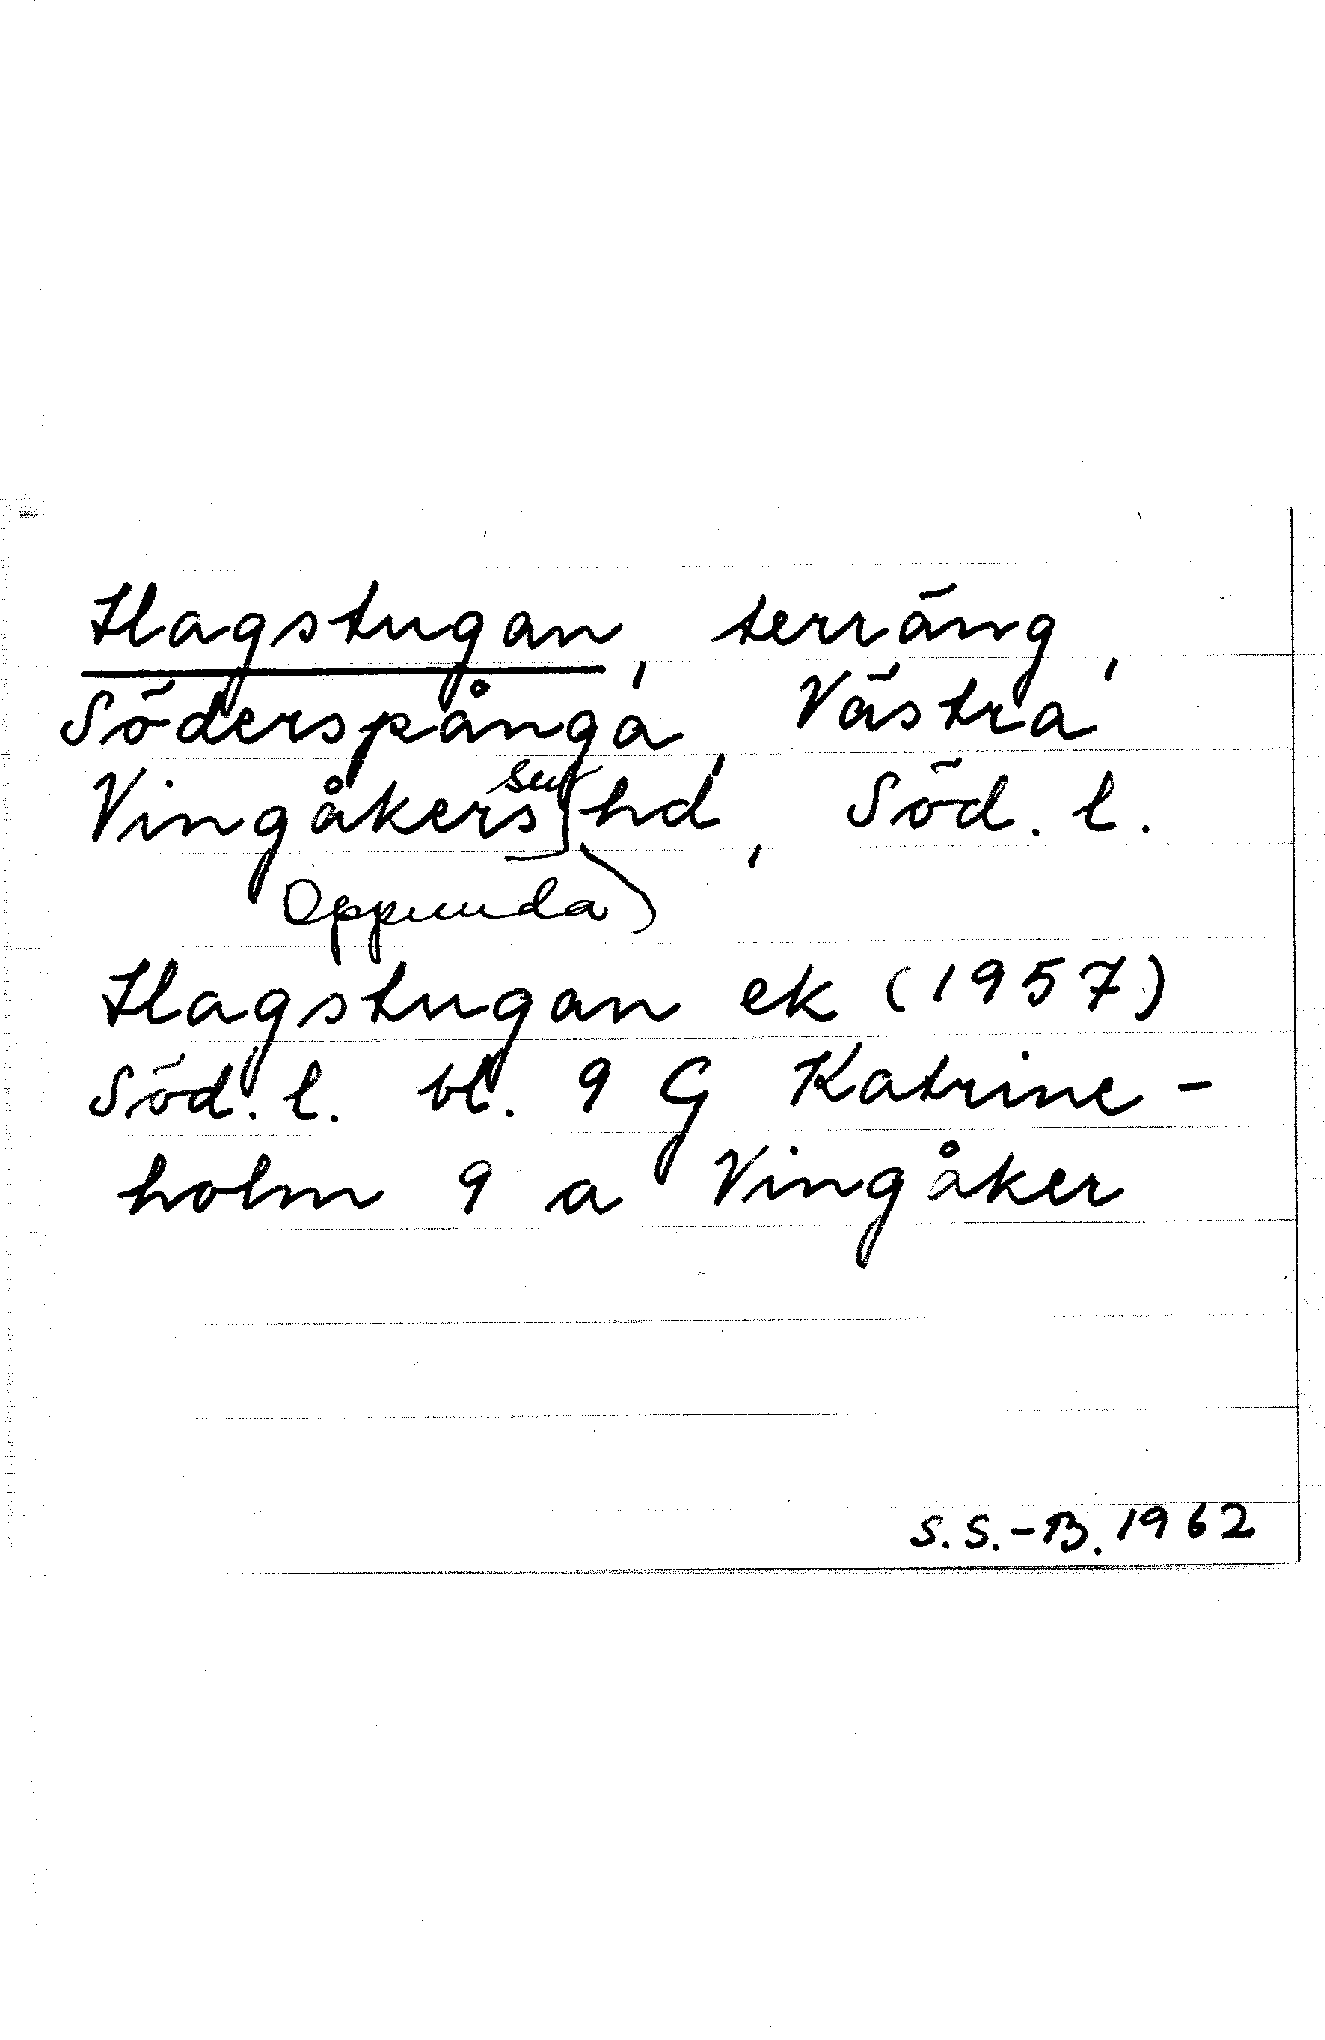 Hagstugan, terräng,
Söderspånga, Västra
Vingåkers sn hd, Söd. l.
Oppunda
Hagstugan ek (1957)
Söd. l. bl. 9 G Katrine-
holm 9 a Vingåker
S. S.-B. 1962